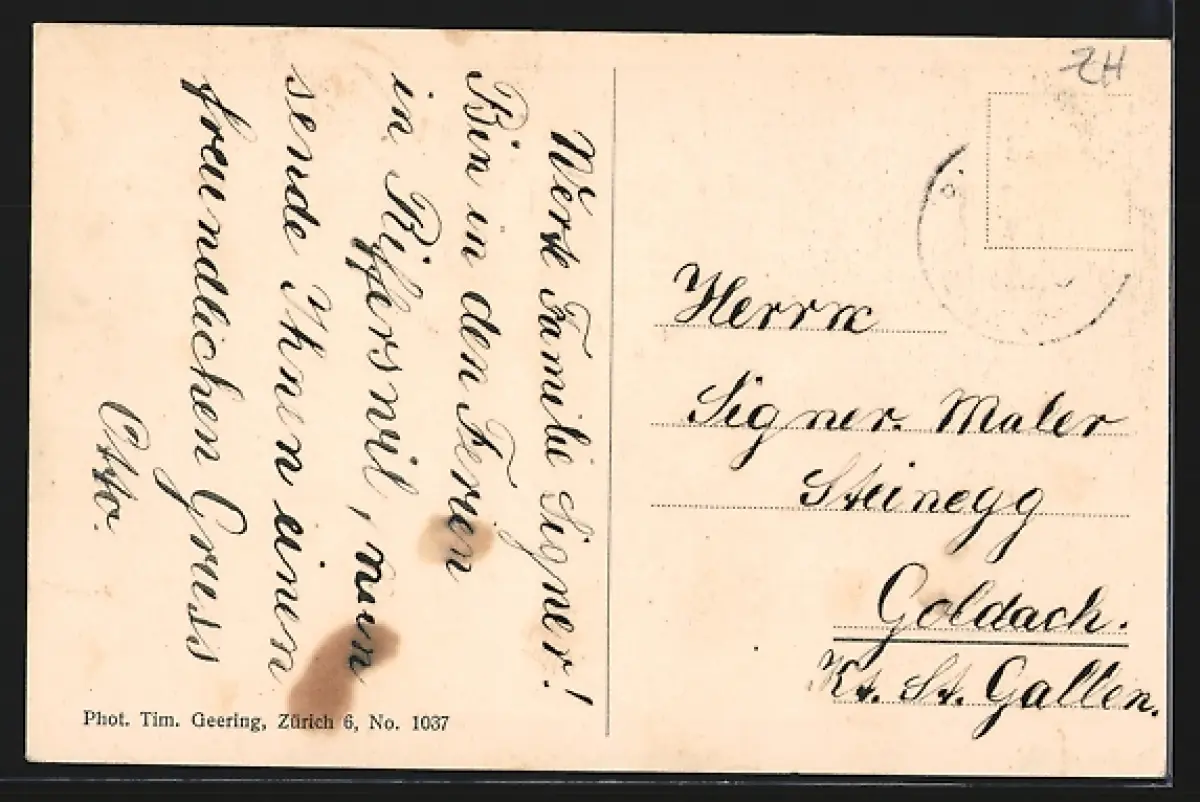 Werte Familie Signer!
Bin in den Ferien
in Rifferswil, nun
sende Ihnen einen
freundlichen Gruss
Otto.
Phot. Tim. Geering, Zürich 6, No. 1037
ZH
Herrn
Signer. Maler
Steinegg
Goldach.
Kt. St. Gallen.